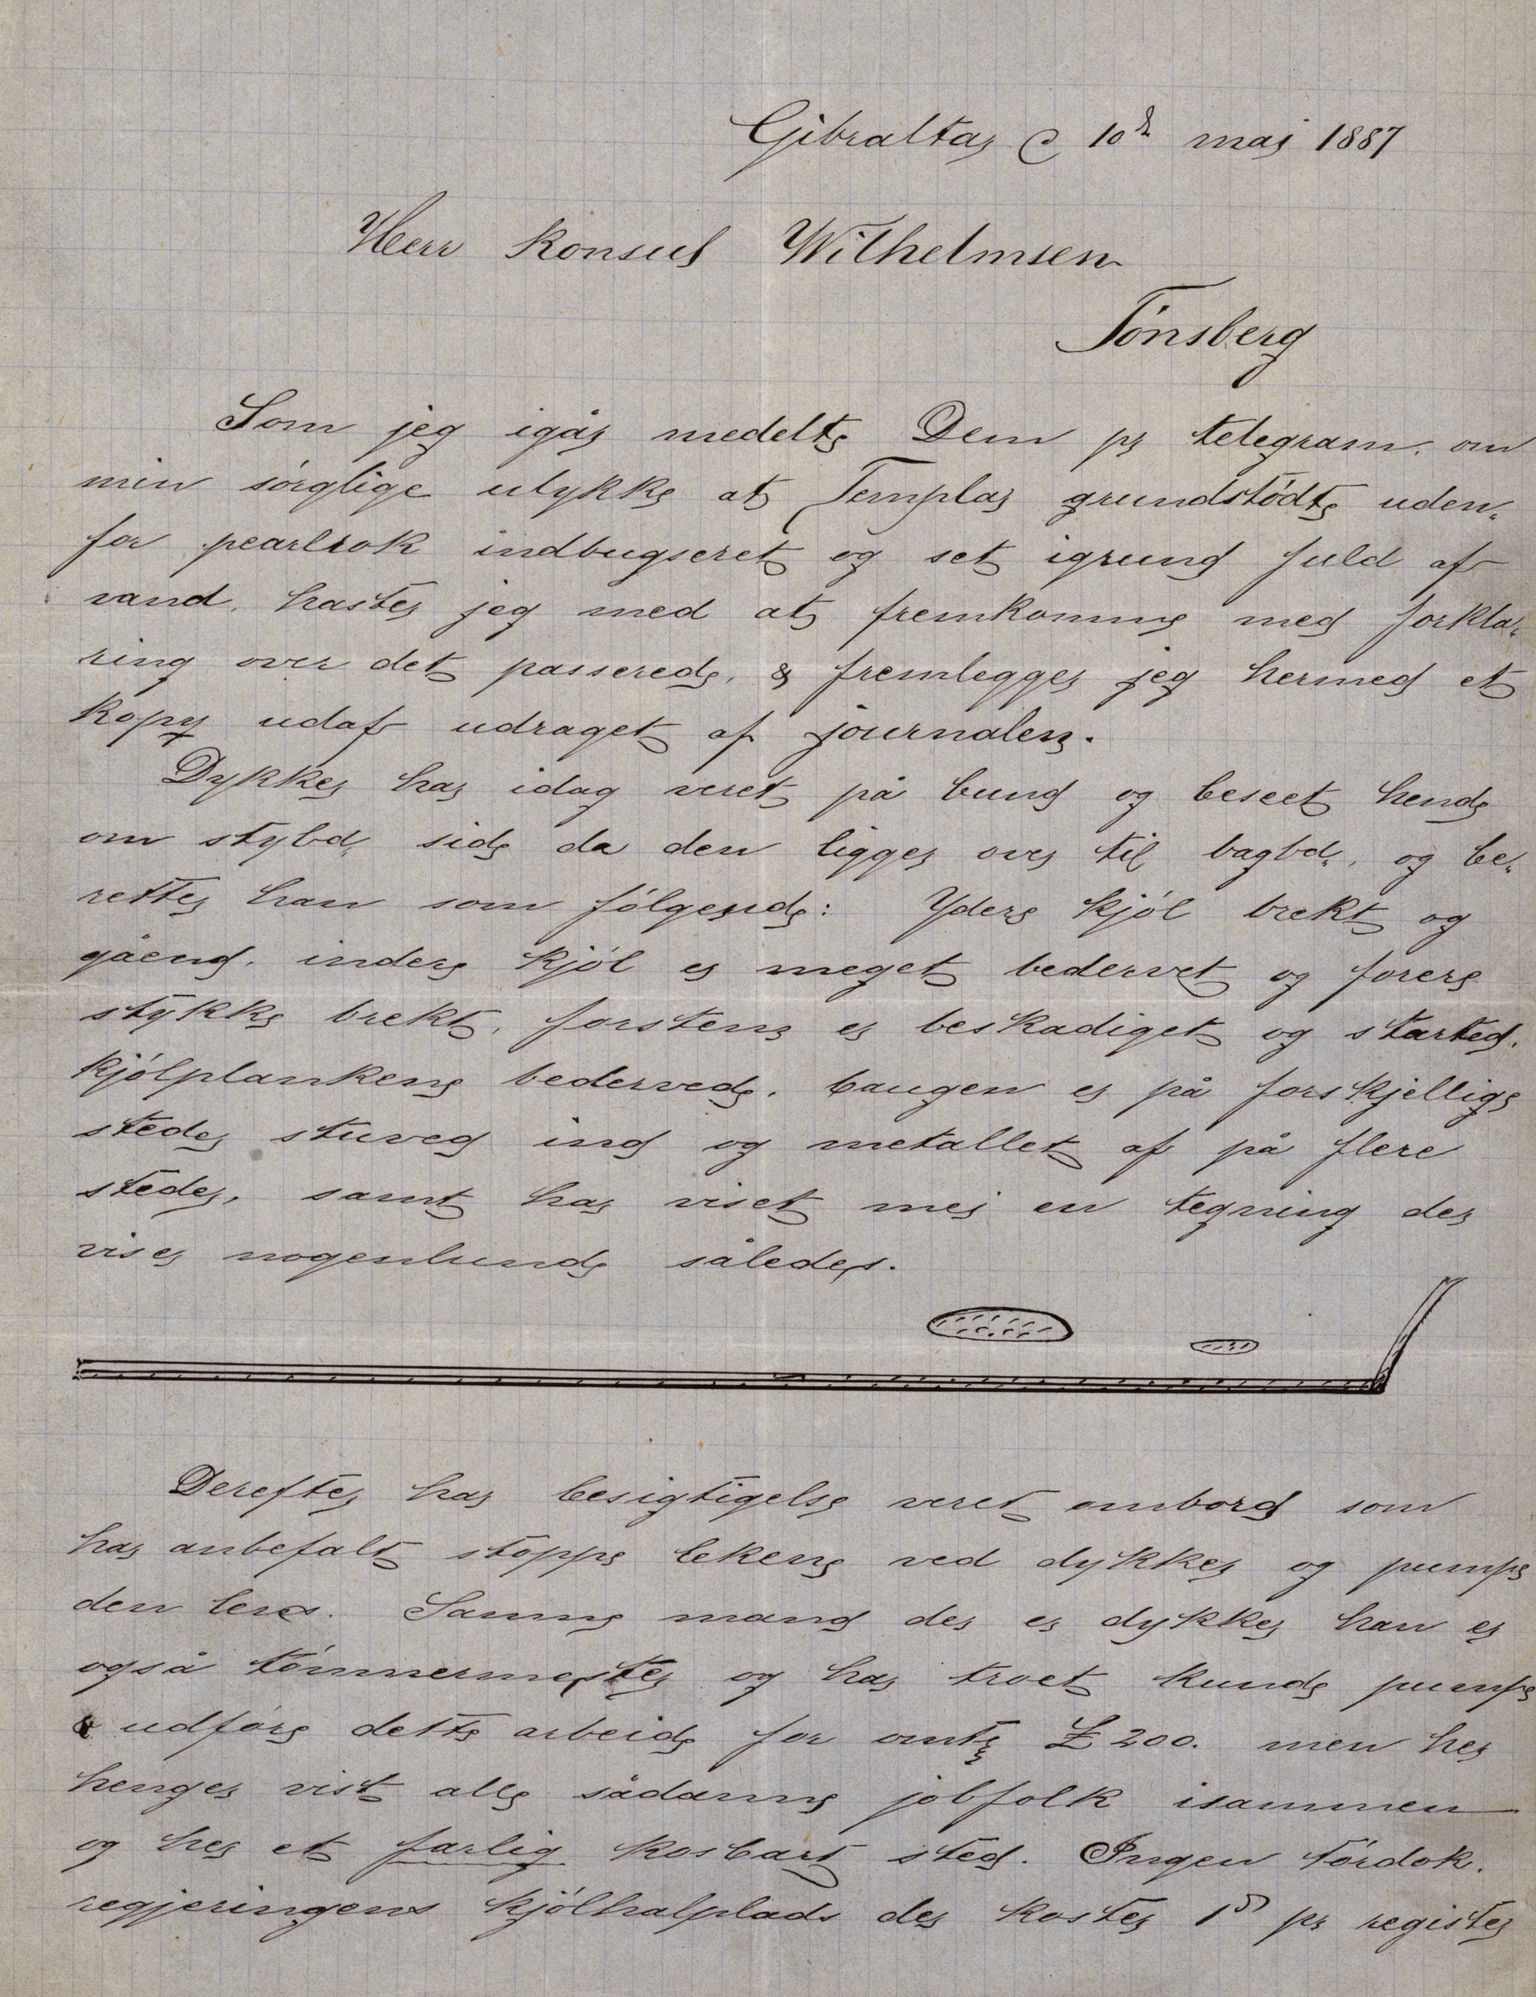 Gibraltar d 10de mai 1887
Herr Konsul Wilhelmsen
Tönsberg
Som jeg igår medelte Dem pr telegram, om
min sörglige ulykke at Templar grundstödte uden„
for pearlrok indbugseret og set igrund fuld af
vand, haster jeg med at fremkomme med forkla„
ring over det passerede, & fremlegger jeg hermed et
kopy udaf udraget af journalen.
Dykker har idag veret på bund og beseet hende
om stybd„ side da den ligger over til bagbd„, og be„
retter han som fölgende: Ydere kjöl brekt og
gåend, indere kjöl er meget bedervet og forere
stykke brekt, forstene er beskadiget og started.
kjölplankene bedervede, baugen er på forskjellige
steder stuved ind og metallet af på flere
steder, samt har viset mei en tegning der
viser nogenlunde således.
Derefter har besigtigelse veret ombord som
har anbefalt stoppe lekene ved dykker og pumpe
den lens. Samme mand der er dykker han er
også tömmermester og har troet kunde pumpe
& udföre dette arbeide for omtr £ 200. men her
henger vist alle sådanne jobfolk isammen
og her et farlig kosbart sted. Ingen tördok.
regjeringens kjölhalplads der koster 1 pr register